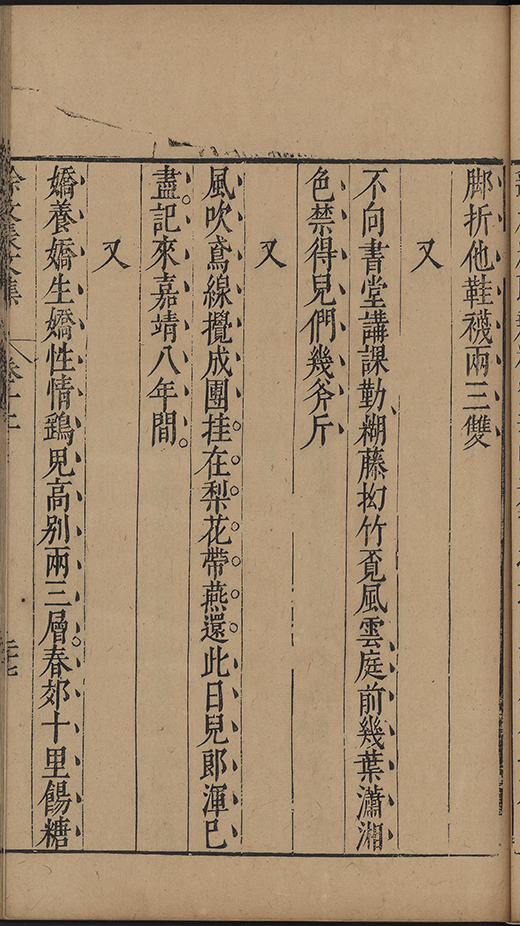 脚折他鞋襪兩三雙
又
不向書堂講課勤糊藤抝竹覔風雲庭前幾葉瀟湘
色禁得兒們幾斧斤
又
風吹鳶線攪成團挂在梨花帶燕還此日兒郎渾已
盡記來嘉靖八年間
又
嬌養嬌生嬌性情鷄兒高别兩三層春郊十里餳糖
徐文長文集
卷十二